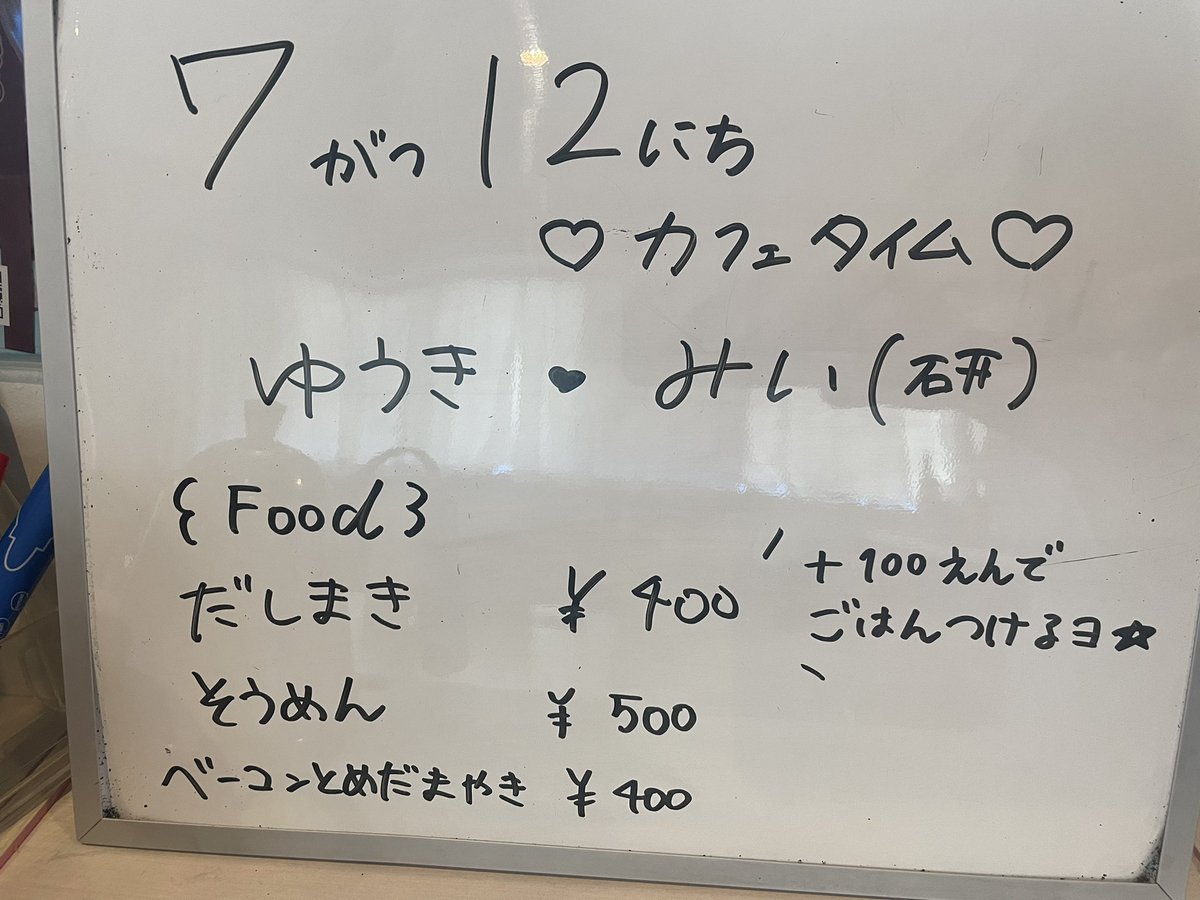 7がつ12にち
♡カフェタイム♡
ゆうき♥みい(研)
{Food}
だしまき ¥400
+100えんで
ごはんつけるヨ☆
そうめん ¥500
ベーコンとめだまやき ¥400